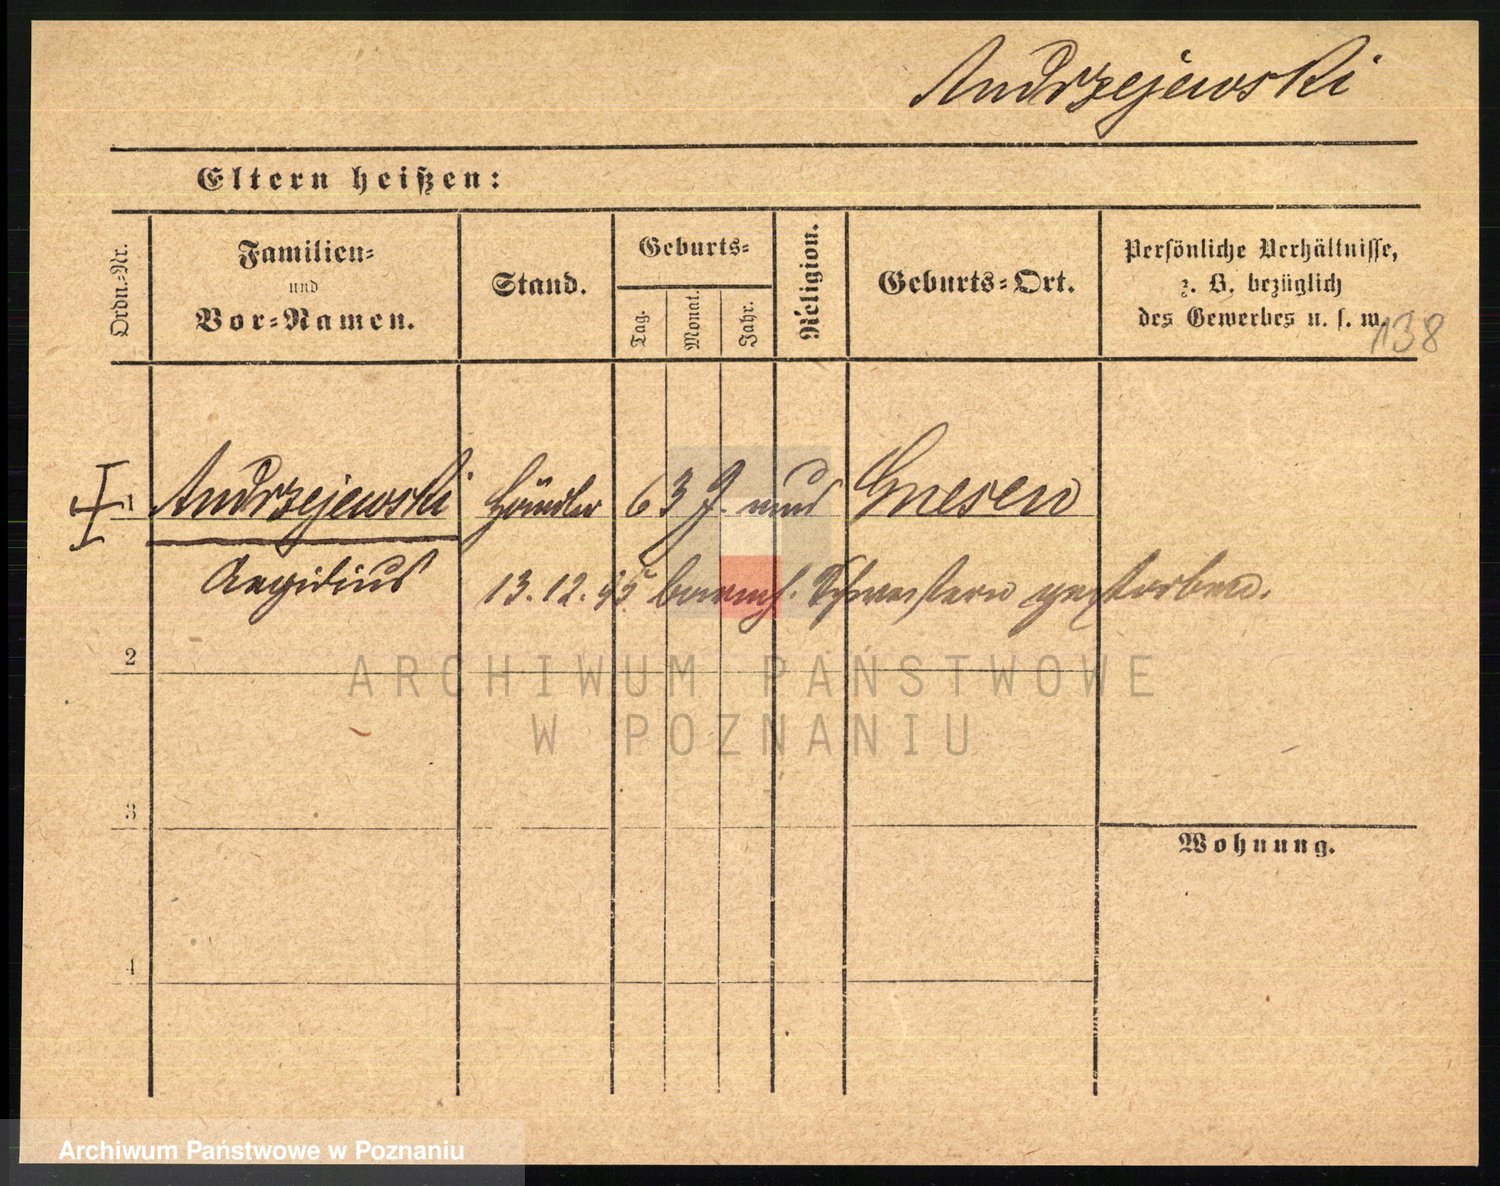 Andrzejewski
Eltern heißen:
Ordn.-Nr.
Familien-
und
Vor-Namen.
Stand.
Geburts-
Tag.
Monat.
Jahr.
Religion.
Geburts-Ort.
Persönliche Verhältnisse,
z. B. bezüglich
des Gewerbes u. s. w.
138
1 Andrzejewski Händler 63 J. Gnesen
Aegidius 13.12.95 barmh. Schwestern gestorben.
2
ARCHIWUM PAŃSTWOWE
W POZNANIU
3
Wohnung.
4
Archiwum Państwowe w Poznaniu